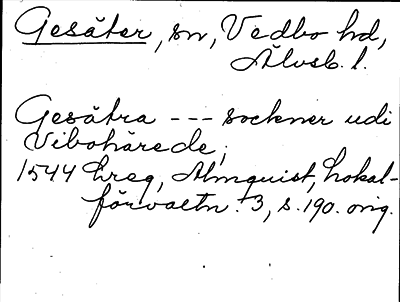 Gesäter, sn, Vedbo hd,
Älvsb. l.
Gesätra --- sockner udi
Vibohärede;
1544 Greg, Almquist, Lokal-
förvaltn. 3, s. 190. orig.